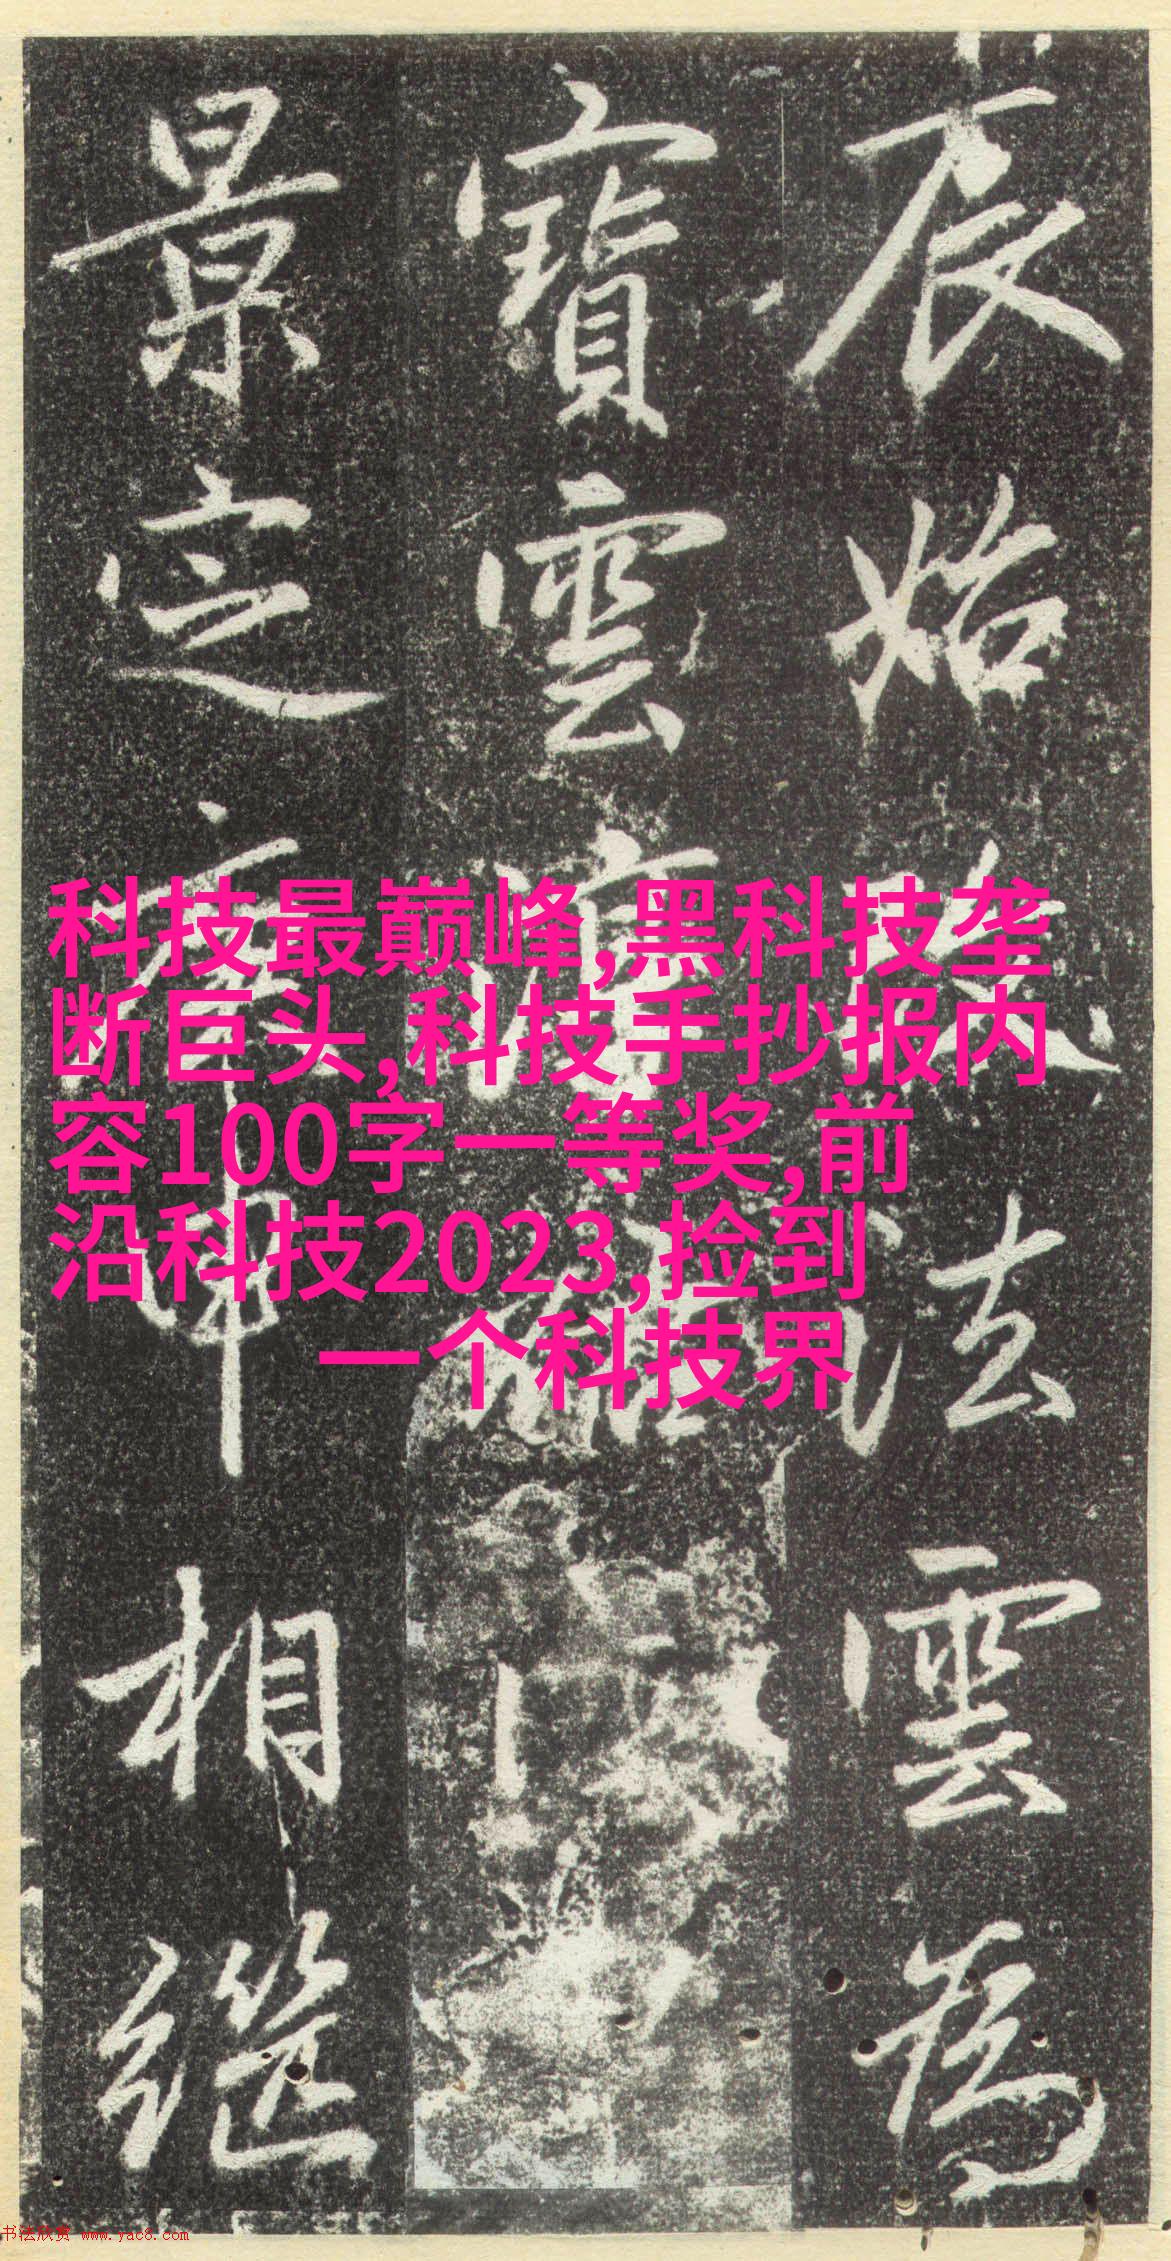 辰始法雲為
寶雲
景定庚申相繼
科技最巅峰,黑科技垄
断巨头,科技手抄报内
容100字一等奖,前
沿科技2023,捡到
一个科技界
书法欣赏 www.yac8.com